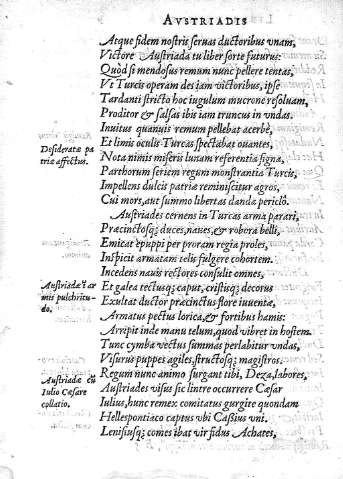 AVSTRIADIS
Atque fidem nostris seruas ductoribus vnam,
Victore Austriada tu liber sorte futurus:
Quòd si mendosus remum nunc pellere tentas,
Vt Turcis operam des iam victoribus, ipse
Tardanti stricto hoc iugulum mucrone resoluam,
Proditor & salsas ibis iam truncus in vndas.
Inuitus quamuis remum pellebat acerbè,
Desideratæ pa
triæ affectus.
Et limis oculis Turcas spectabat ouantes,
Nota nimis miserii luxam referentia signa,
Parthorum seriem regum monstrantia Turcis,
Impellens dulcis patriæ reminiscitur agros,
Cui mors, aut summo libertas danda periclo.
Austriades cernens in Turcas arma parari,
Præcinctosq; duces, naues, & robora belli,
Emicat è puppi per proram regia proles,
Inspicit armatam telis fulgere cohortem.
Incedens nauis rectores consulit omnes,
Austriadæ i ar
mis pulchritu-
do.
Et galea tectusq; caput, cristisq; decorus
Exultat ductor præcinctus flore iuuentæ,
Armatus pectus lorica, & fortibus hamis:
Arripit inde manu telum, quod vibret in hostem.
Tunc cymba vectus summas perlabitur vndas,
Visurus puppes agiles, structosq; magistros.
Austriadæ cũ
Iulio Cæsare
collatio.
Regum nunc animo surgant tibi, Deza, labores,
Austriades visus sic lintre occurrere Cæsar
Iulius, hunc remex comitatus gurgite quondam
Hellespontiaco captus vbi Cassius vni.
Lenisiusq; comes ibat vir fidus Achates,